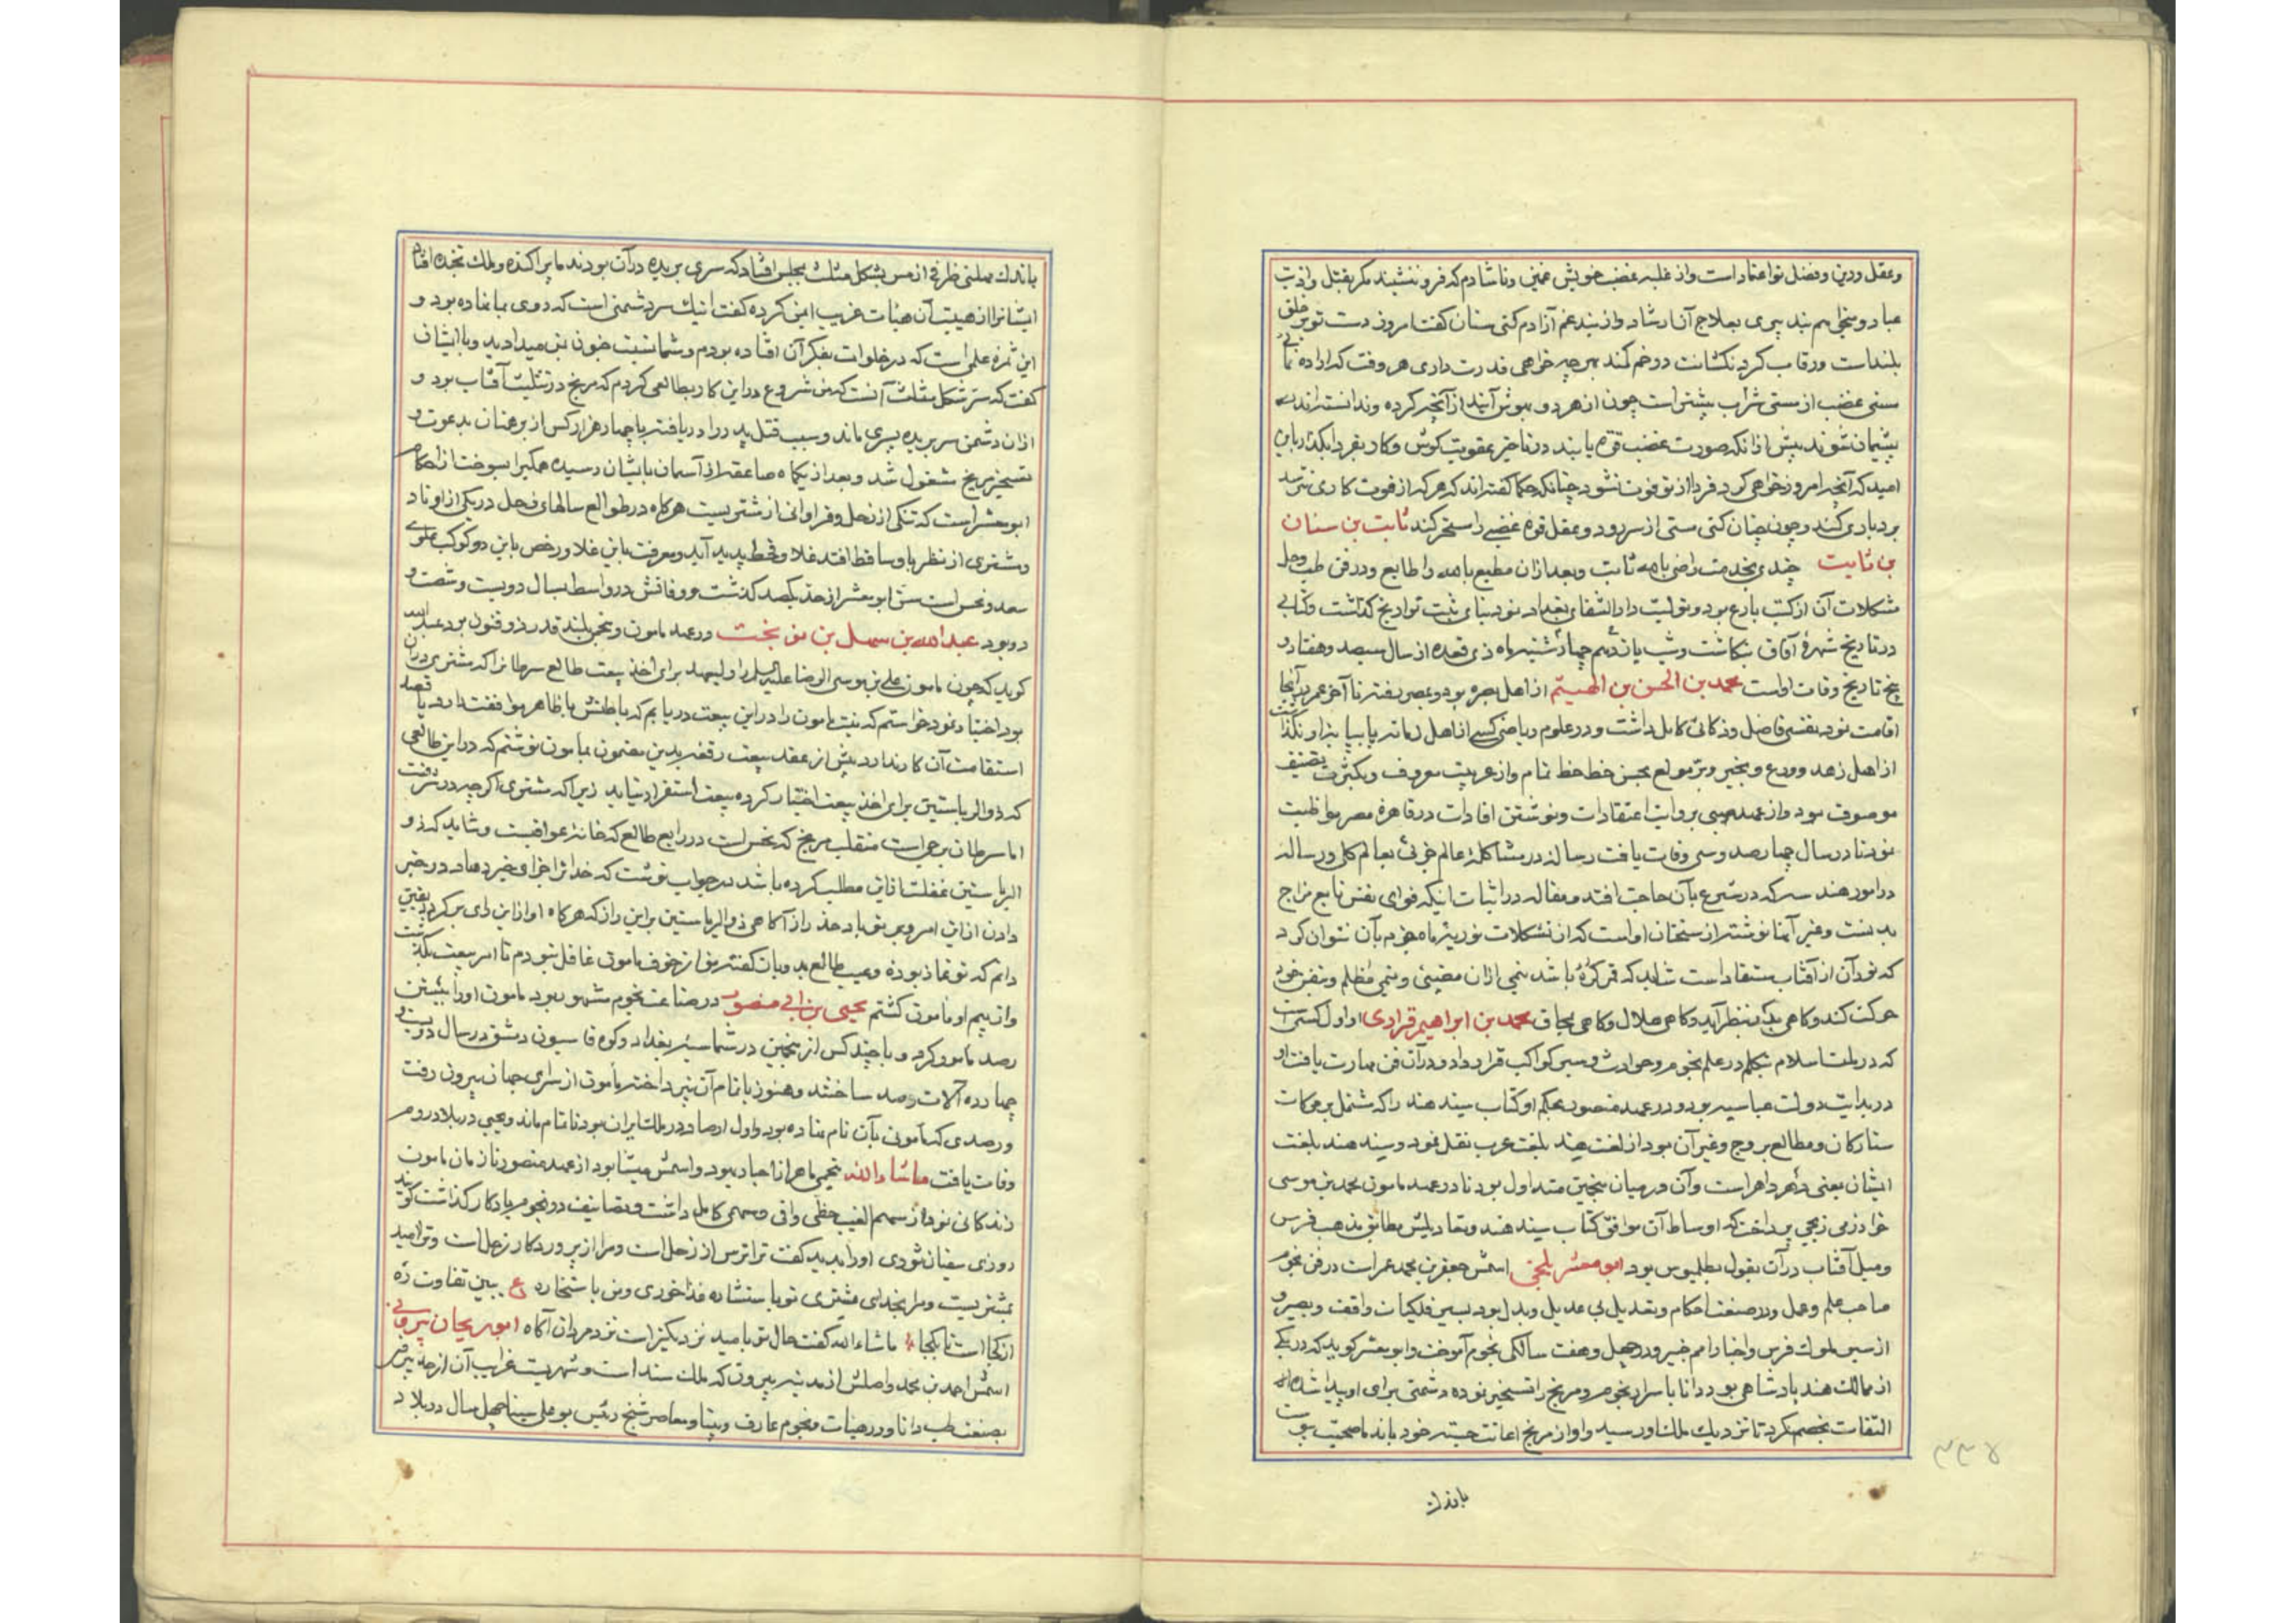 وعقل ودین وفضل تو اعتماد است واز غلبه غضب خویش غمین وناشادم که فرو ننشیند مکر بقتل واذیت
عباد وسخنی هم نپذیری بعلاج آن ارشاد واز بند غم آزادم کنی سنان کفت امروز دست تو بر خلق
بلند است ورقاب کردنکشانت در خم کمند بهر چه خواهی قدرت داری هر وقت که اراده نمائی
مستی غضب از مستی شراب بیشتر است چون از هر دو بهوش آیند از آنچه کرده وندانسته‌اند
پشیمان شوند پیش از آنکه صورت غضب قوة یابد در تاخیر عقوبت کوش وکار بفردا بکذار باین
امید که آنچه امروز خواهی کرد فردا از تو فوت نشود چنانکه حکما کفته‌اند که هر که از فوت کاری نترسد
بردباری کند وچون چنان کنی مستی از سر رود وعقل قوه غضبی را مسخر کند ثابت بن سنان
بن ثابت چندی بخدمت راضی بالله ثابت وبعد از آن مطیع بالله را طایع ودر فن طب وحل
مشکلات آن از کتب بارع بود وتولیت دار الشفای بغداد نمود بنای ثبت تواریخ کذاشت وکتابی
در تاریخ شهره آفاق نکاشت وشب یازدهم چهارشنبه ماه ذی قعده از سال سیصد وهفتاد و
پنج تاریخ وفات اوست محمد بن الحسن بن الهیثم از اهل بصره بود وبمصر رفته تا آخر عمر در آنجا
اقامت نمود نفسی فاضل وذکائی کامل داشت ودر علوم ریاضی کسی از اهل زمانه پا بپایه او نکذاشت
از اهل زهد وورع وبخیر وبر مولع بحسن خط حظ تمام واز عربیت معروف وبکثرت تصنیف
موصوف بود واز عهد صبی بروایت اعتقادات ونوشتن افادات در قاهره مصر مواظبت
نمود تا در سال چهار صد وسی وفات یافت رساله در مشاکله عالم جزئی بعالم کلی ورساله
در امور هندسه که در شرع بآن حاجت افتد ومقاله در اثبات اینکه قوای نفس تابع مزاج
بدنست وغیر آنها نوشته از سخنان اوست که از تشکلات نوریه ماه جزم بآن نتوان کرد
که نور آن از آفتاب مستفاد است شاید که قمر کره باشد نیمی از آن مضیئی ونیمی مظلم وبنفس خود
حرکت کند وکاهی بدر بنظر آید وکاهی هلال وکاهی بمحاق محمد بن ابراهیم قراری او اول کسی است
که در ملت اسلام تکلم در علم نجوم وحوادث وسیر کواکب قرار داد ودر آن فن مهارت یافت او
در بدایت دولت عباسیه بود ودر عهد منصور بحکم او کتاب سیند هند را که مشتمل بر حرکات
ستارکان ومطالع بروج وغیر آن بود از لغت هند بلغت عرب نقل نمود وسیند هند بلغت
ایشان یعنی دهر داهر است وآن در میان منجمین متداول بود تا در عهد مامون محمد بن موسی
خوارزمی زیجی پرداخت که اوساط آن موافق کتاب سیند هند وتعادیلش مطابق مذهب فرس
ومیل آفتاب در آن بقول بطلمیوس بود ابو معشر بلخی اسمش جعفر بن محمد عمر است در فن نجوم
صاحب علم وعمل ودر صنعت احکام وتعدیل بی عدیل وبدل بود بسیر فلکیات واقف وبصیر و
از سیر ملوک فرس واخبار امم خبیر ودر چهل وهفت سالکی نجوم آموخت وابو معشر کوید که در یکی
از ممالک هند پادشاهی بود دانا باسرار نجوم ومریخ را تسخیر نموده دشمنی برای او پیدا شد
التفات بخصم نکرد تا نزدیک ملک او رسید واو از مریخ اعانت جسته خود باندماء صحبت پیوست
باندک
باندک مهلتی ظرفی از مس بشکل مثلث بمجلس افتاد که سری بریده در آن بود ندما پراکنده وملک بخنده افتاد
ایشانرا از هیبت آن هیأت غریب ایمن کرده کفت اینک سر دشمنی است که روی بما نهاده بود و
این ثمره علمی است که در خلوات بفکر آن افتاده بودم وشما نسبت جنون بمن میدادید وبا ایشان
کفت که ستر شکل مثلث آنست که من شروع در این کار بطالعی کردم که مریخ در تثلیث آفتاب بود و
از آن دشمن سر بریده پسری ماند وسبب قتل پدر را دریافته با چهار هزار کس از برهمنان بدعوت و
تسخیر مریخ مشغول شد وبعد از یکماه صاعقه از آسمان بایشان رسیده همکیرا بسوخت از احکام
ابو معشر است که تنکی از زحل وفراوانی از مشتریست هرکاه در طوالع سالهای زحل در یکی از اوتاد
ومشتری از نظر باو ساقط افتد غلا وقحط پدید آید ومعرفت باین غلا ورخص باین دو کوکب علوی
سعد ونحس است سن ابو معشر از حد یکصد کذشت ووفاتش در واسط بسال دویست وشصت و
دو بود عبد الله بن سهل بن نو بخت در عهد مامون ومنجمی بلند قدر ذو فنون بود عبد الله
کوید که چون مامون علی بن موسی الرضا علیه السلم را ولیعهد برای اخذ بیعت طالع سرطانرا که مشتری در آن
بود اختیار نمود خواستم که نیت مامون را در این بیعت دریابم که باطنش با ظاهر موافقت دارد یا قصد
استقامت آن کار ندارد پیش از عقد بیعت رقعه بدین مضمون بمامون نوشتم که در این طالعی
که ذو الریاستین برای اخذ بیعت اختیار کرده بیعت استقرار نیابد زیرا که مشتری اکر چه در شرفست
اما سرطان برجی است منقلب ومریخ که نحس است در رابع طالع که خانه عواقبست وشاید که ذو
الریاستین غفلت از این مطلب کرده باشد در جواب نوشت که خدا ترا جزای خیر دهاد در خبر
دادن از این امر وبر تو باد حذر از آکاهی ذو الریاستین بر این راز که هرکاه او از این رای برکردد بیقین
دانم که تو غماز بوده وعیب طالع بدو بان کفته من از خوف مامون غافل نبودم تا امر بیعت بکذشت
واز بیم او مامون کشتم یحیی بن ابی منصور در صناعت نجوم مشهور بود مامون اورا ببستن
رصد مامور کرد وبا چند کس از منجمین در شماسیه بغداد وکوه قاسیون دمشق در سال دویست و
چهارده آلات رصد ساختند وهنوز باتمام آن نپرداخته مامون از سرای جهان بیرون رفت
ورصدی که مامونی بآن نام نهاده بود واول ارصاد در ملت ایران بود ناتمام ماند ویحیی در بلاد روم
وفات یافت ماشاء الله منجمی ماهر از احبار یهود واسمش میشا بود از عهد منصور تا زمان مامون
زندکانی نمود از سهم الغیب حظی وافی وسهمی کامل داشت وتصانیف در نجوم یادکار کذاشت کویند
روزی سفیان ثوری اورا بدید کفت ترا ترس از زحل است ومرا از پروردکار زحل است وترا امید
بمشتریست ومرا بخدای مشتری تو باستشاره فدا خوری ومن باستخاره ع ببین تفاوت ره
از کجا است تا بکجا ماشاء الله کفت حال تو بامید نزدیکتر است نزد مردان آکاه ابو ریحان بیرونی
اسمش احمد بن محمد واصلش از مدینه بیرون که ملک سند است وشهریست غرایب آن از حد بیرون
بصنعت طب دانا ودر هیات ونجوم عارف وبینا ومعاصر شیخ رئیس بو علی سینا چهل سال در بلاد